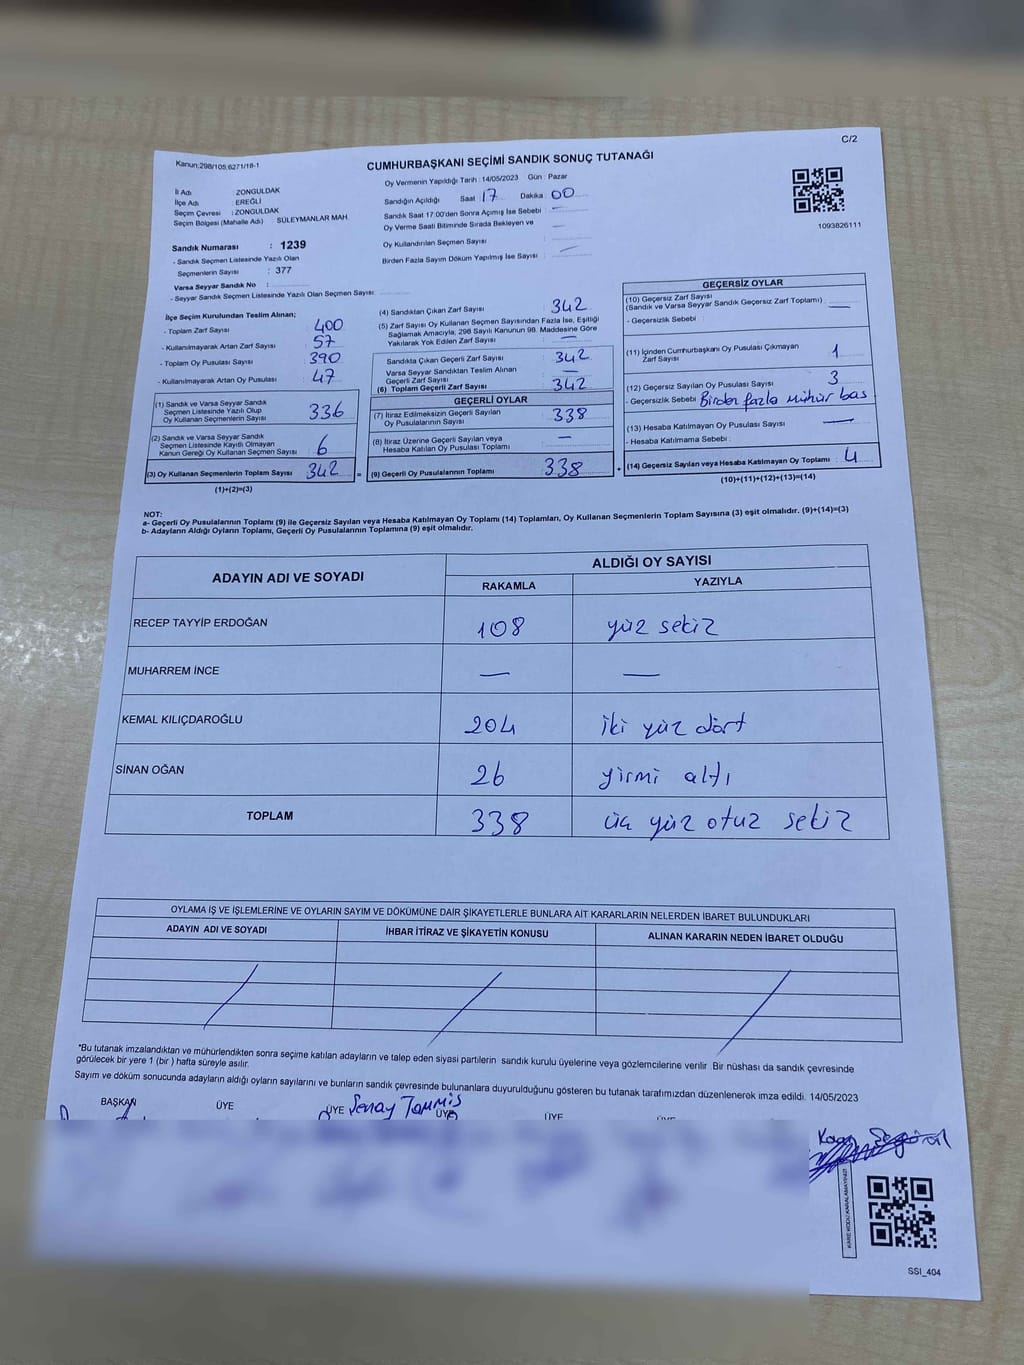 C/2
Kanun:298/105,6271/18-1
CUMHURBAŞKANI SEÇİMİ SANDIK SONUÇ TUTANAĞI
İl Adı : ZONGULDAK
İlçe Adı : EREĞLİ
Seçim Çevresi : ZONGULDAK
Seçim Bölgesi (Mahalle Adı) SÜLEYMANLAR MAH.
Sandık Numarası : 1239
- Sandık Seçmen Listesinde Yazılı Olan
Seçmenlerin Sayısı : 377
Varsa Seyyar Sandık No :
- Seyyar Sandık Seçmen Listesinde Yazılı Olan Seçmen Sayısı:
Oy Vermenin Yapıldığı Tarih : 14/05/2023 Gün : Pazar
Sandığın Açıldığı Saat 17 Dakika 00
Sandık Saat 17:00'den Sonra Açımış İse Sebebi : —
Oy Verme Saati Bitiminde Sırada Bekleyen ve
Oy Kullandırılan Seçmen Sayısı : —
Birden Fazla Sayım Döküm Yapılmış İse Sayısı : —
1093826111
İlçe Seçim Kurulundan Teslim Alınan;
- Toplam Zarf Sayısı : 400
- Kullanılmayarak Artan Zarf Sayısı : 57
- Toplam Oy Pusulası Sayısı : 390
- Kullanılmayarak Artan Oy Pusulası : 47
(1) Sandık ve Varsa Seyyar Sandık
Seçmen Listesinde Yazılı Olup
Oy Kullanan Seçmenlerin Sayısı : 336
(2) Sandık ve Varsa Seyyar Sandık
Seçmen Listesinde Kayıtlı Olmayan
Kanun Gereği Oy Kullanan Seçmen Sayısı : 6
(3) Oy Kullanan Seçmenlerin Toplam Sayısı : 342 =
(1)+(2)=(3)
(4) Sandıktan Çıkan Zarf Sayısı : 342
(5) Zarf Sayısı Oy Kullanan Seçmen Sayısından Fazla İse, Eşitliği
Sağlamak Amacıyla, 298 Sayılı Kanunun 98. Maddesine Göre
Yakılarak Yok Edilen Zarf Sayısı : —
Sandıkta Çıkan Geçerli Zarf Sayısı : 342
Varsa Seyyar Sandıktan Teslim Alınan
Geçerli Zarf Sayısı : —
(6) Toplam Geçerli Zarf Sayısı : 342
GEÇERLİ OYLAR
(7) İtiraz Edilmeksizin Geçerli Sayılan
Oy Pusulalarının Sayısı : 338
(8) İtiraz Üzerine Geçerli Sayılan veya
Hesaba Katılan Oy Pusulası Toplamı : —
(9) Geçerli Oy Pusulalarının Toplamı : 338 +
GEÇERSİZ OYLAR
(10) Geçersiz Zarf Sayısı
(Sandık ve Varsa Seyyar Sandık Geçersiz Zarf Toplamı) : —
- Geçersizlik Sebebi :
(11) İçinden Cumhurbaşkanı Oy Pusulası Çıkmayan
Zarf Sayısı : 1
(12) Geçersiz Sayılan Oy Pusulası Sayısı : 3
- Geçersizlik Sebebi : Birden fazla mühür bas
(13) Hesaba Katılmayan Oy Pusulası Sayısı : —
- Hesaba Katılmama Sebebi :
(14) Geçersiz Sayılan veya Hesaba Katılmayan Oy Toplamı : 4
(10)+(11)+(12)+(13)=(14)
NOT:
a- Geçerli Oy Pusulalarının Toplamı (9) ile Geçersiz Sayılan veya Hesaba Katılmayan Oy Toplamı (14) Toplamları, Oy Kullanan Seçmenlerin Toplam Sayısına (3) eşit olmalıdır. (9)+(14)=(3)
b- Adayların Aldığı Oyların Toplamı, Geçerli Oy Pusulalarının Toplamına (9) eşit olmalıdır.
ADAYIN ADI VE SOYADI
ALDIĞI OY SAYISI
RAKAMLA YAZIYLA
RECEP TAYYİP ERDOĞAN 108 yüz sekiz
MUHARREM İNCE — —
KEMAL KILIÇDAROĞLU 204 iki yüz dört
SİNAN OĞAN 26 yirmi altı
TOPLAM 338 üç yüz otuz sekiz
OYLAMA İŞ VE İŞLEMLERİNE VE OYLARIN SAYIM VE DÖKÜMÜNE DAİR ŞİKAYETLERLE BUNLARA AİT KARARLARIN NELERDEN İBARET BULUNDUKLARI
ADAYIN ADI VE SOYADI İHBAR İTİRAZ VE ŞİKAYETİN KONUSU ALINAN KARARIN NEDEN İBARET OLDUĞU
*Bu tutanak imzalandıktan ve mühürlendikten sonra seçime katılan adayların ve talep eden siyasi partilerin sandık kurulu üyelerine veya gözlemcilerine verilir. Bir nüshası da sandık çevresinde
görülecek bir yere 1 (bir ) hafta süreyle asılır.
Sayım ve döküm sonucunda adayların aldığı oyların sayılarını ve bunların sandık çevresinde bulunanlara duyurulduğunu gösteren bu tutanak tarafımızdan düzenlenerek imza edildi. 14/05/2023
BAŞKAN ÜYE ÜYE Şenay ÜYE ÜYE ÜYE
SSI_404